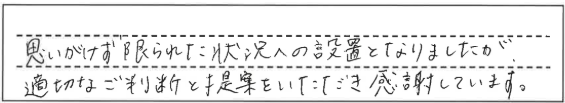 思いがけず限られた状況への設置となりましたが、
適切なご判断と提案をいただき感謝しています。